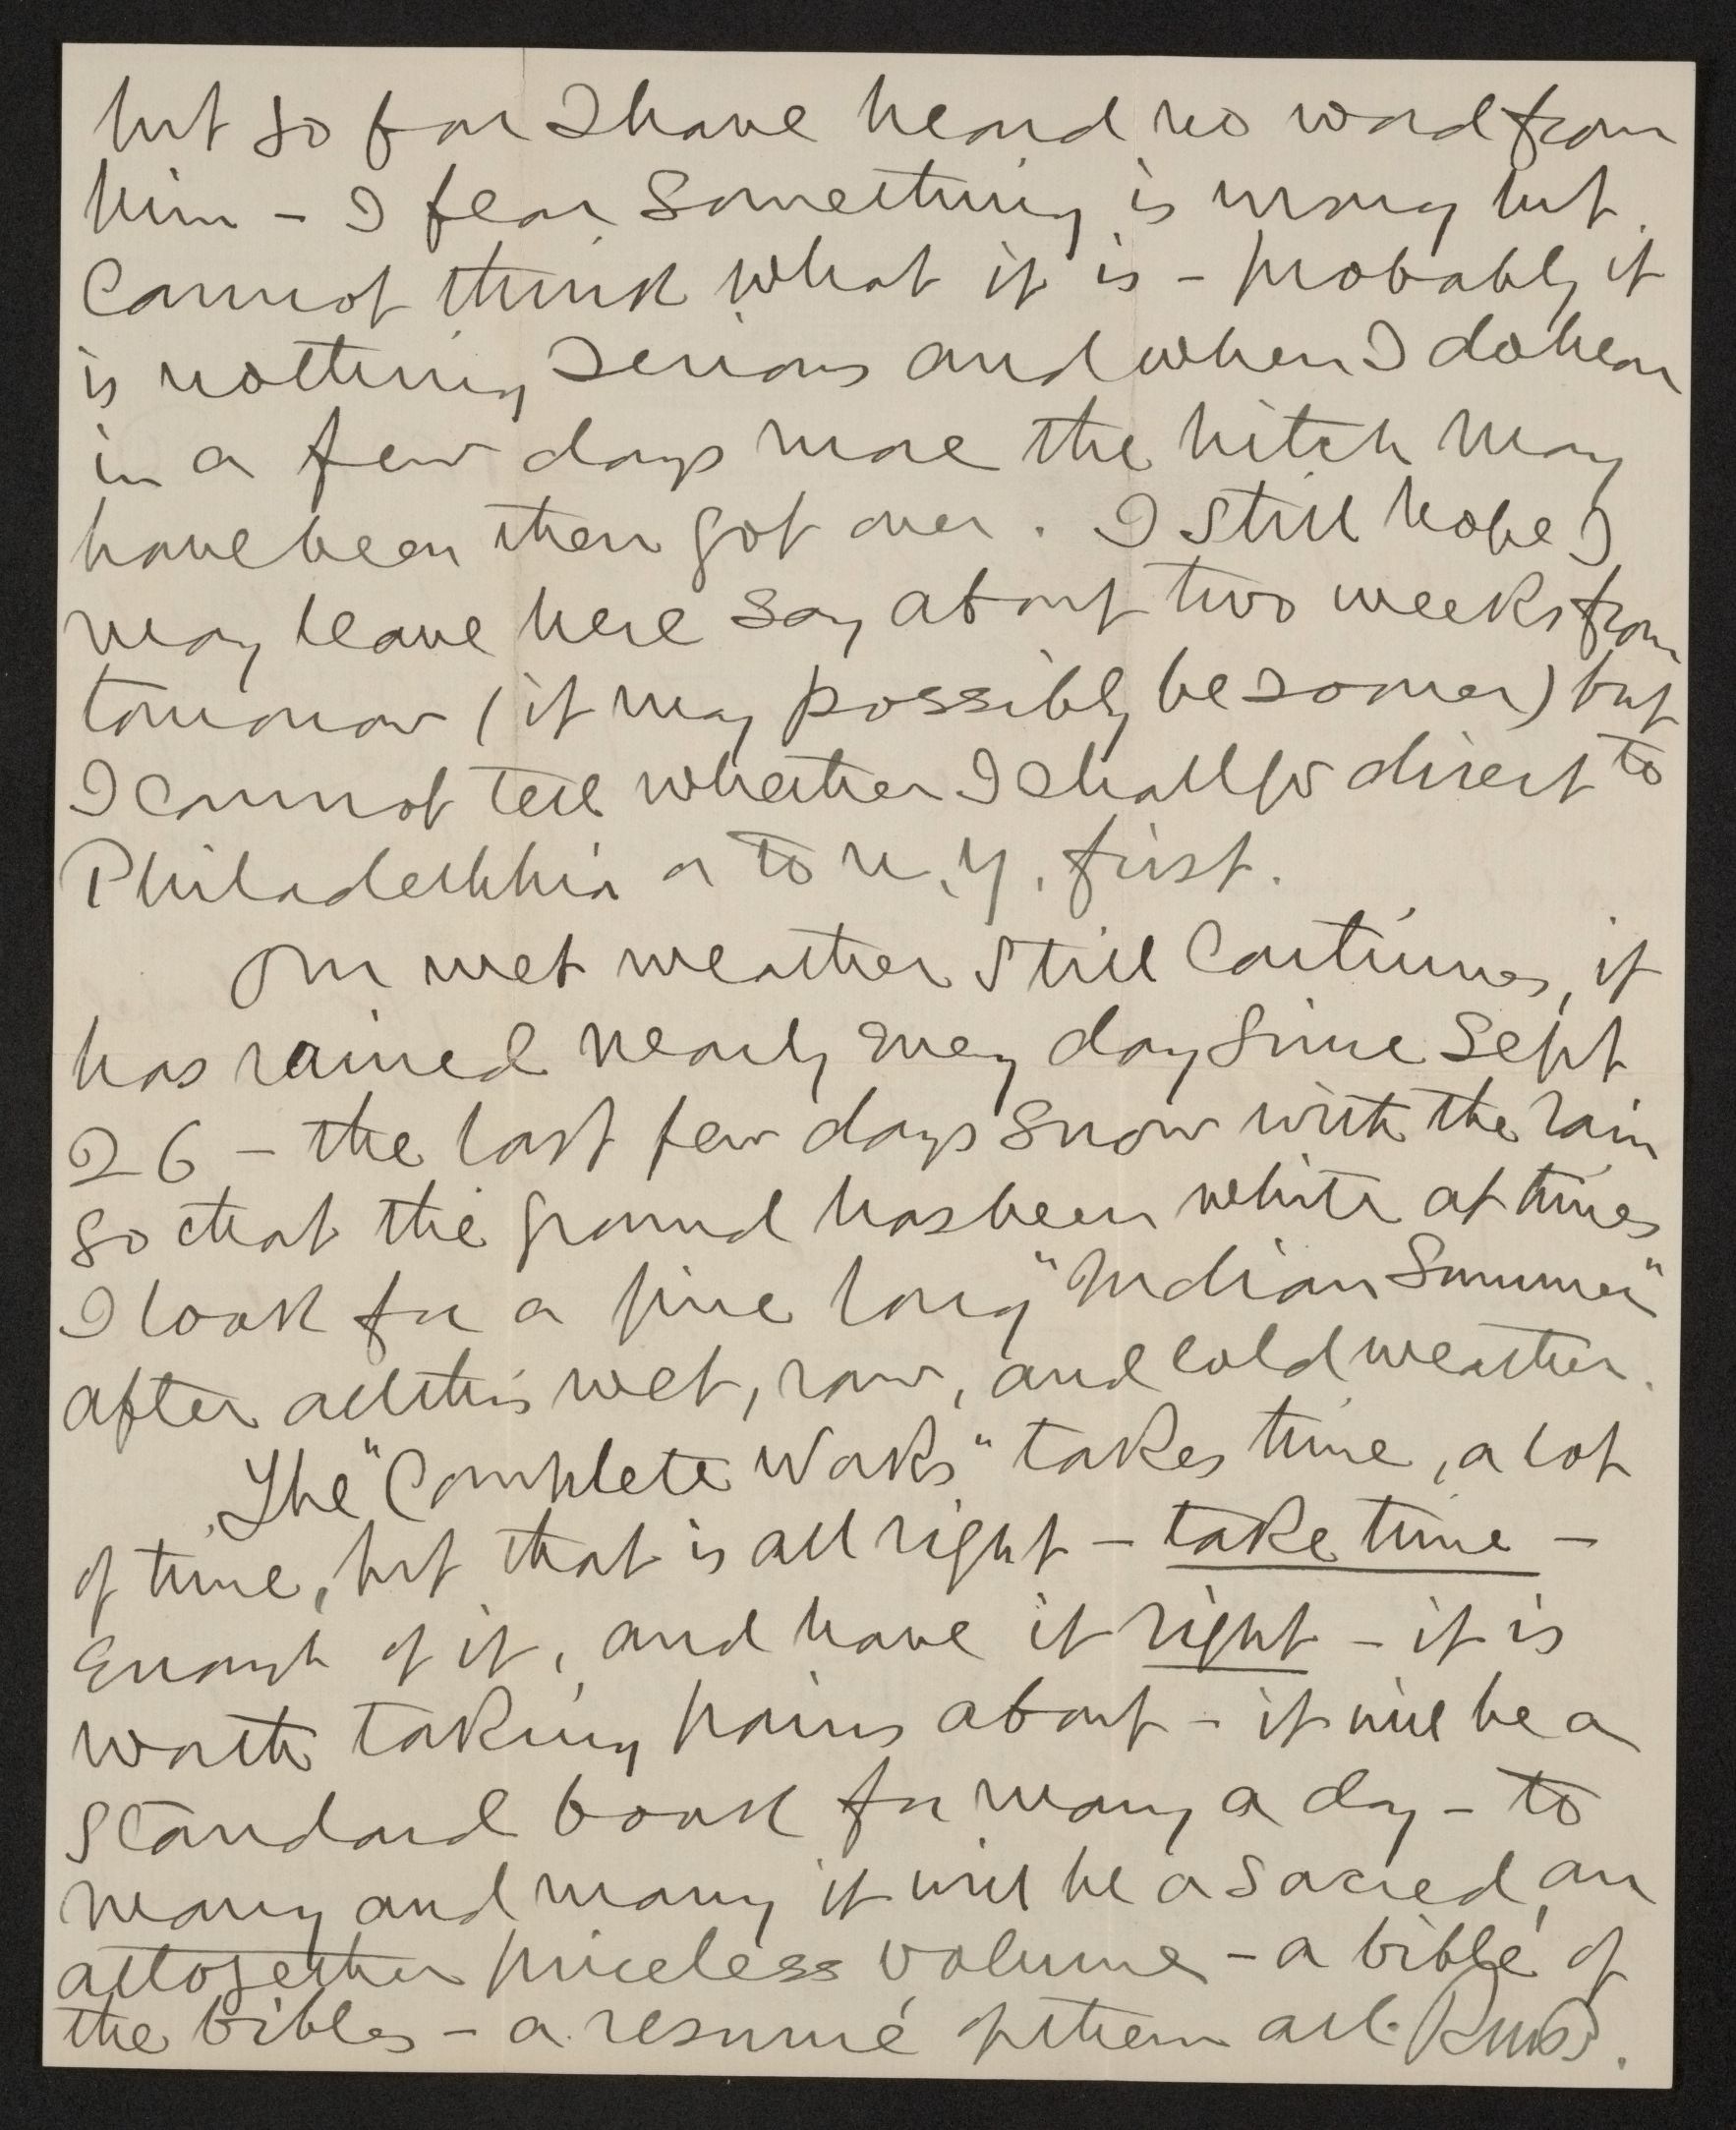 but so far I have heard no word from
him – I fear something is wrong but
cannot think what it is – probably it
is nothing serious and when I do hear
in a few days more the hitch may
have been then got over. I still hope I
may leave here say about two weeks from
tomorrow (it may possibly be sooner) but
I cannot tell whether I shall go direct to
Philadelphia or to N.Y. first.
Our wet weather still continues, it
has rained nearly every day since Sept
26 – the last few days snow with the rain
so that the ground has been white at times
I look for a fine long "Indian Summer"
after all this wet, raw, and cold weather.
The "Complete Works" takes time, a lot
of time, but that is all right – take time –
enough of it, and have it right – it is
worth taking pains about – it will be a
standard book for many a day – to
many and many it will be a sacred, an
altogether priceless volume – a bible of
the bibles – a resumé of them all. RMB.